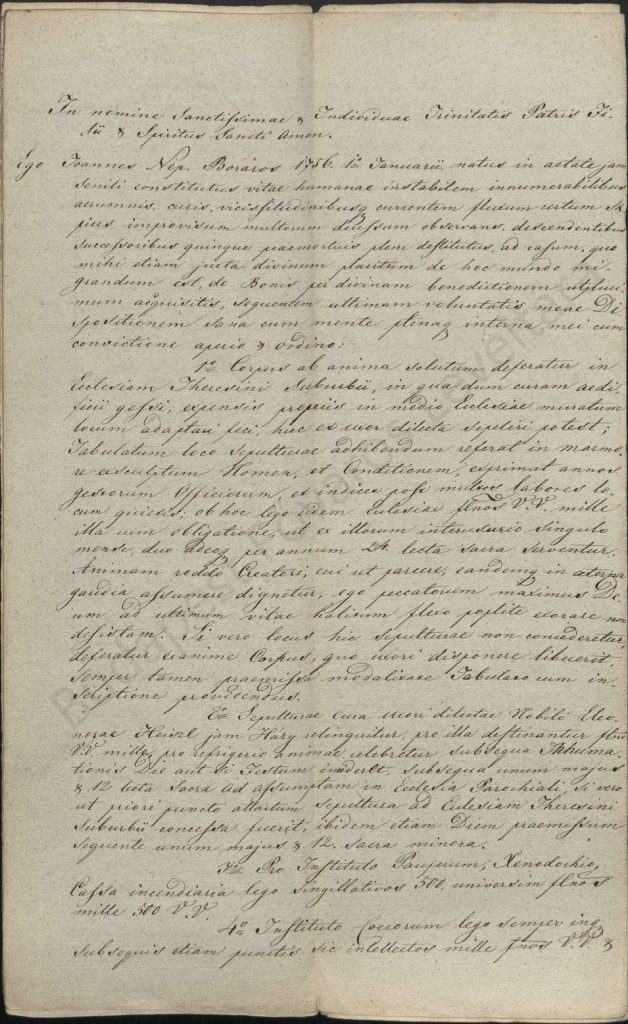 In nomine Sanctissimae & Individuae Trinitatis Patris Fi-
lii & Spiritus Sancti Amen.
Ego Joannes Nep. Boráros 1756. 1ª Januarii natus in aetate jam
senili constitutus vitae humanae instabilem innumerabilibus
aerumnis, curis, vicissitudinibusq currentem fluxum certum sae
pius improvisum multorum decessum observans, descendentibus
successoribus quinque praemortuis plene destitutus, ad casum, quo
mihi etiam juxta divinum placitum de hoc mundo mi-
grandum est, de Bonis per divinam benedictionem utpluri-
mum acquisitis, sequentem ultimam voluntatis meae Di-
spositionem sana cum mente plenaq interna mei cum
convictione aperio & ordino:
1º Corpus ab anima solutum deferatur in
Ecclesiam Theresini Suburbii, in qua dum curam aedi-
ficii gessi, expensis propriis in medio Ecclesiae muratum
locum adaptari feci, huc ex uxor dilecta sepeliri potest;
Tabulatum loco sepulturae adhibendum referat in marmo-
re exsculptum Nomen, et Conditionem, exprimat annos
gestorum Officiorum, et indicet post multos labores lo-
cum quietis; ob hoc lego eidem Ecclesiae flnos V.V. mille
illa cum obligatione, ut ex illorum interusurio singulo
mense, duo adeoq per annum 24 lecta sacra serventur.
Animam reddo Creatori, cui ut parcere, eandemq in aeterna
gaudia assumere dignetur, ego peccatorum maximus De-
um ad ultimum vitae halitum flexo poplite exorare non
desistam. Si vero locus hic sepulturae non concederetur,
deferatur exanime Corpus, quo uxori disponere libuerit,
semper tamen praemissa modalitate Tabulato cum in-
scriptione providendus.
2º Sepulturae cura uxori dilectae Nobili Eleo-
norae Heinzl jam Háry relinquitur, pro illa destinantur flni
V.V. mille, pro refrigerio animae celebretur subsequa Inhuma-
tionis Die aut si Festum inciderit, subsequa unum majus
& 12 lecta Sacra ad assumptam in Ecclesia Parochiali, si vero
ut priori puncto attactum sepultura ad Ecclesiam Theresini
Suburbii concessa fuerit, ibidem etiam Diem praemissum
sequente unum majus & 12. sacra minora.
3º Pro Instituto Pauperum, Xenodochio,
Cassa incendiaria lego singillativos 500, universim flnos
mille 500 V.V.
4º Instituto Coecorum lego semper inq
subsequis etiam punctis sic intellectos mille flnos V.V. &